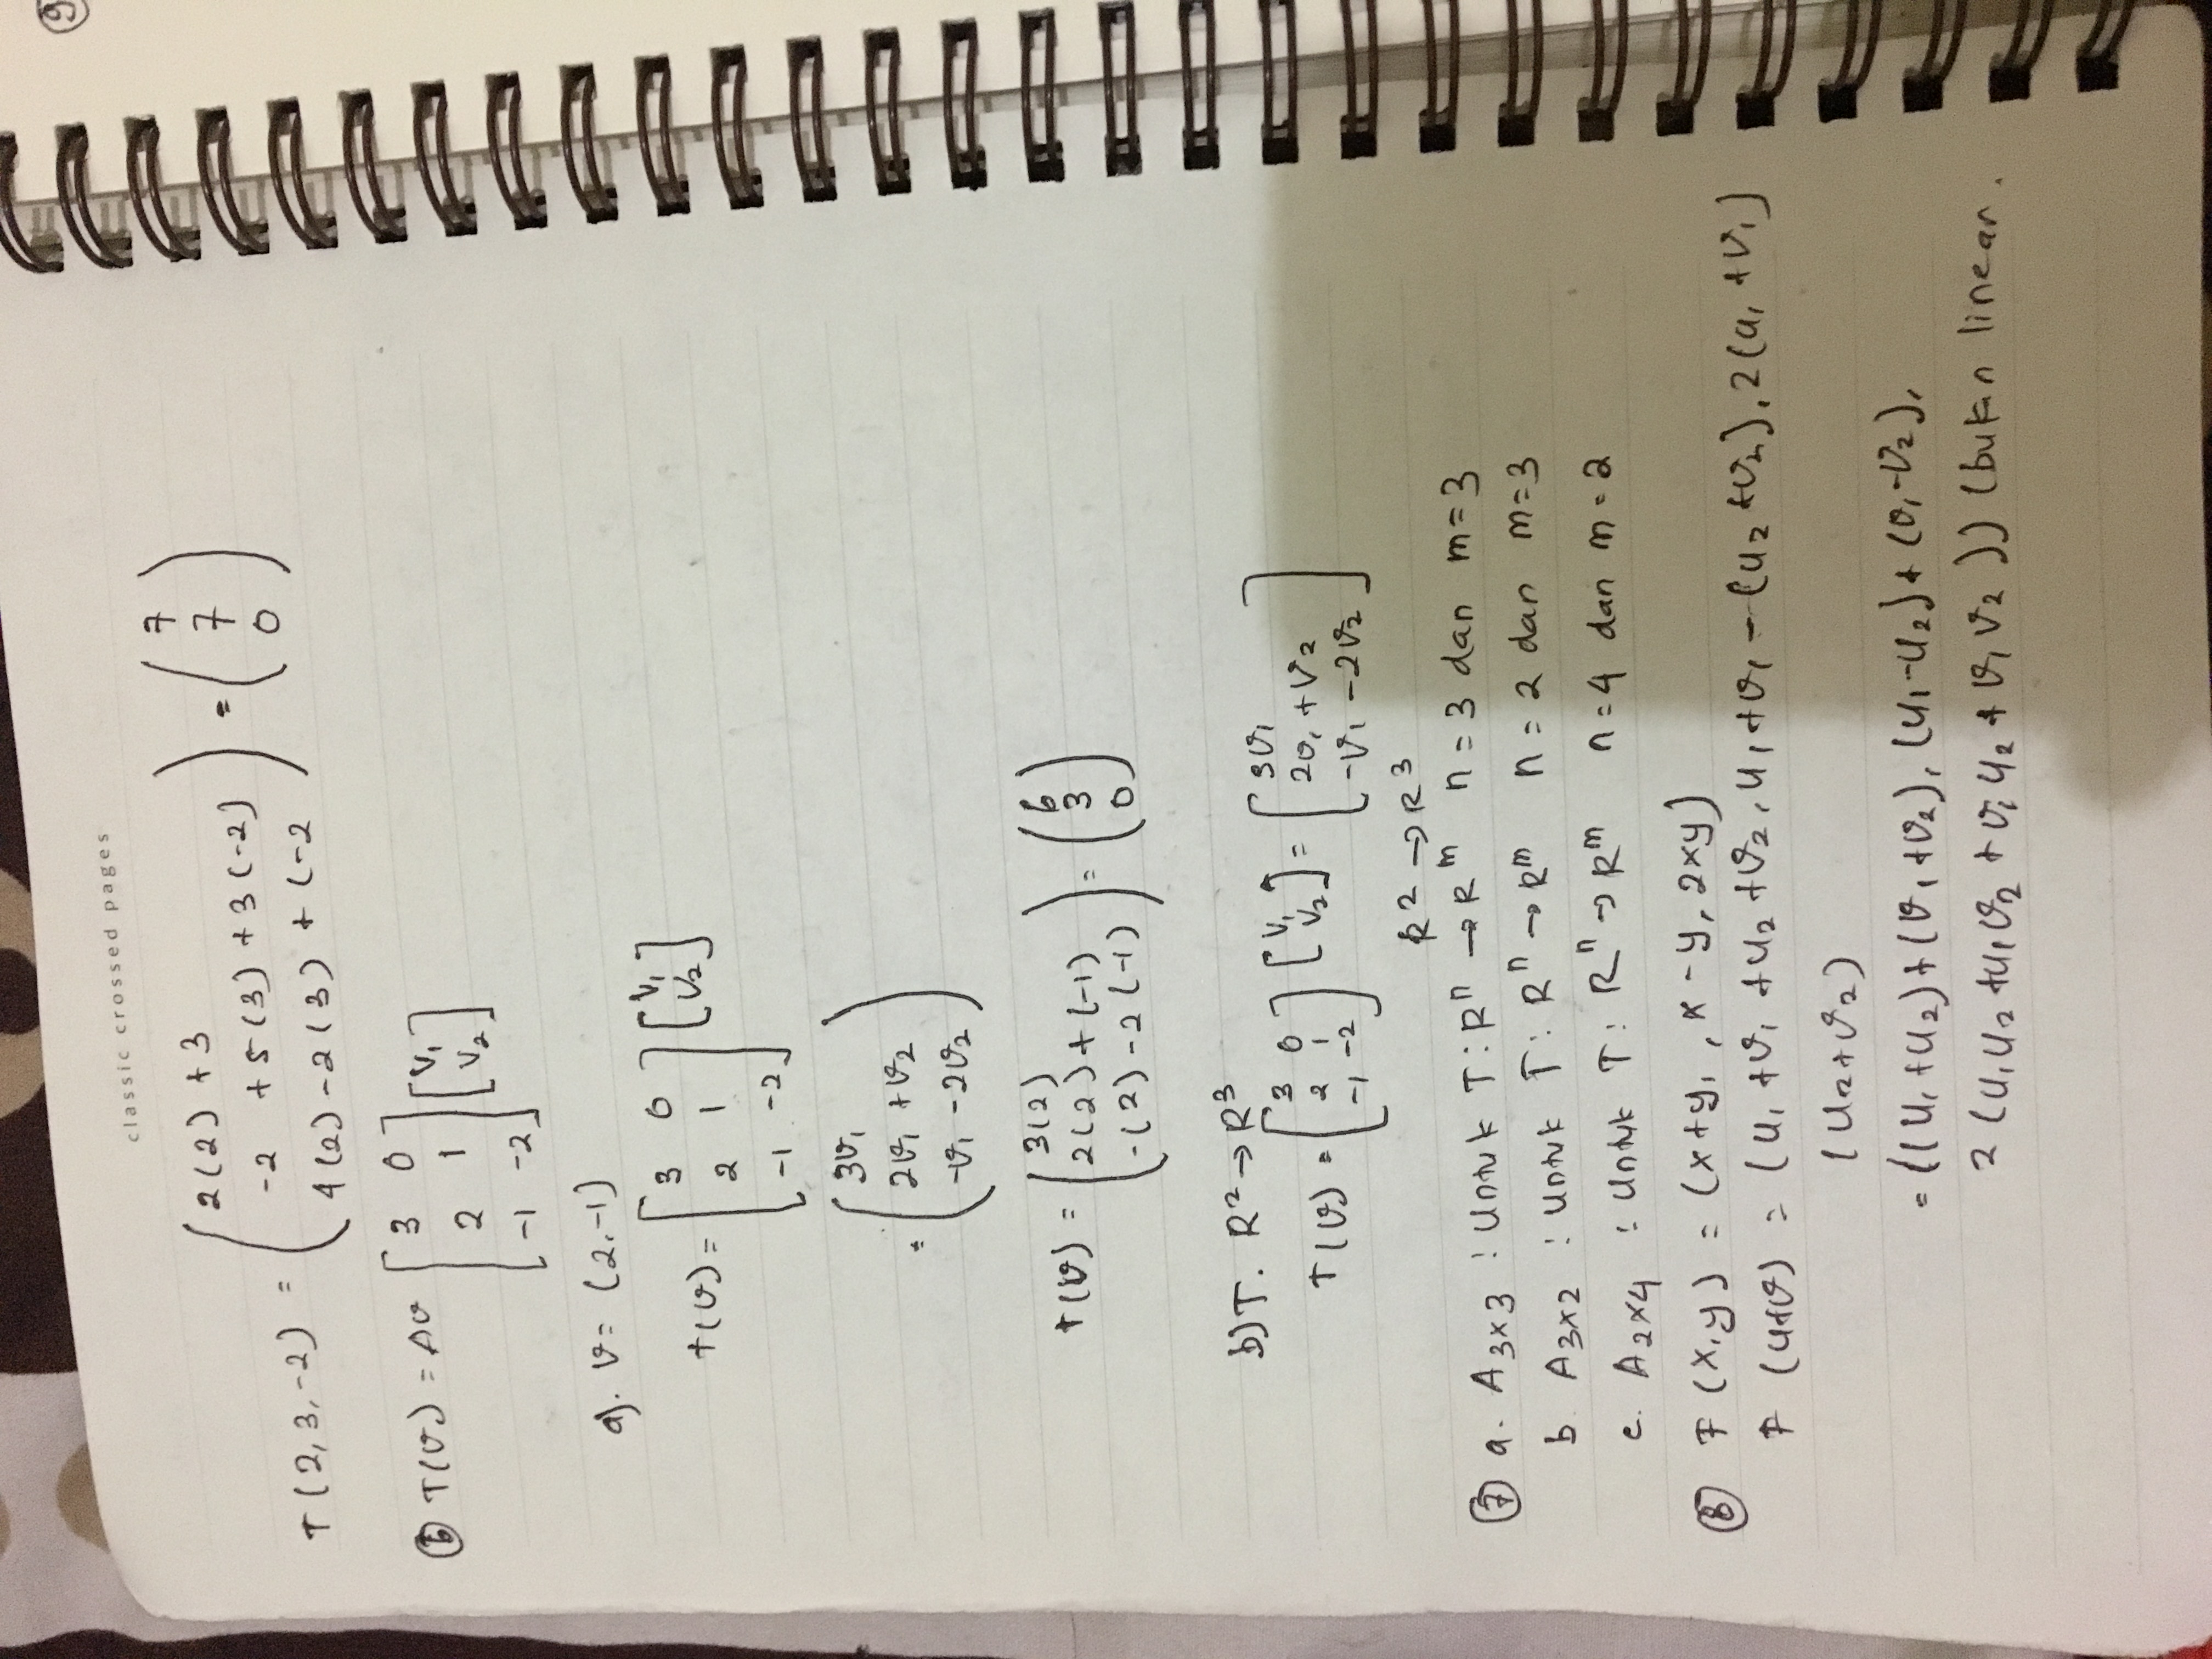 classic crossed pages
9
T(2,3,-2) = ( 2(2) + 3
-2 + 5(3) + 3(-2)
4(2) - 2(3) + (-2 ) = ( 7
7
0 )
6 T(v) = Av [ 3 0
2 1
-1 -2 ] [ v₁
v₂ ]
a). v = (2,-1)
T(v) = [ 3 0
2 1
-1 -2 ] [ v₁
v₂ ]
= ( 3v₁
2v₁ + v₂
-v₁ - 2v₂ )
T(v) = ( 3(2)
2(2) + (-1)
-(2) - 2(-1) ) = ( 6
3
0 )
b) T. R² → R³
T(v) = [ 3 0
2 1
-1 -2 ] [ v₁
v₂ ] = [ 3v₁
2v₁ + v₂
-v₁ - 2v₂ ]
R² → R³
7 a. A₃ₓ₃ : Untuk T : Rⁿ → Rᵐ n = 3 dan m = 3
b. A₃ₓ₂ : Untuk T : Rⁿ → Rᵐ n = 2 dan m = 3
c. A₂ₓ₄ : Untuk T : Rⁿ → Rᵐ n = 4 dan m = 2
8 F (x,y) = (x+y, , x - y, 2xy)
F (u+v) = (u₁ + v₁ + u₂ + v₂, u₁ + v₁ - (u₂ + v₂), 2(u₁ + v₁)
(u₂ + v₂)
= ((u₁ + u₂) + (v₁ + v₂), (u₁ - u₂) + (v₁ - v₂),
2 (u₁u₂ + u₁v₂ + v₁u₂ + v₁v₂)) (bukan linear.